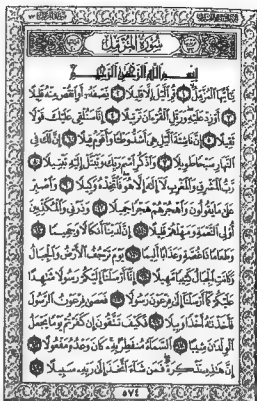 سورة المزمل
بسم الله الرحمن الرحيم
يٰٓأيها المزمل ١ قم الليل إلا قليلا ٢ نصفه أو انقص منه قليلا
٣ أو زد عليه ورتل القرءان ترتيلا ٤ إنا سنلقى عليك قولا
ثقيلا ٥ إن ناشئة الليل هى أشد وطـٔا وأقوم قيلا ٦ إن لك فى
النهار سبحا طويلا ٧ واذكر اسم ربك وتبتل إليه تبتيلا ٨
رب المشرق والمغرب لا إله إلا هو فاتخذه وكيلا ٩ واصبر
على ما يقولون واهجرهم هجرا جميلا ١٠ وذرنى والمكذبين
أولى النعمة ومهلهم قليلا ١١ إن لدينا أنكالا وجحيما ١٢
وطعاما ذا غصة وعذابا أليما ١٣ يوم ترجف الأرض والجبال
وكانت الجبال كثيبا مهيلا ١٤ إنا أرسلنا إليكم رسولا شاهدا
عليكم كما أرسلنا إلى فرعون رسولا ١٥ فعصى فرعون الرسول
فأخذناه أخذا وبيلا ١٦ فكيف تتقون إن كفرتم يوما يجعل
الولدان شيبا ١٧ السماء منفطر به كان وعده مفعولا ١٨
إن هذه تذكرة فمن شاء اتخذ إلى ربه سبيلا ١٩
٥٧٤